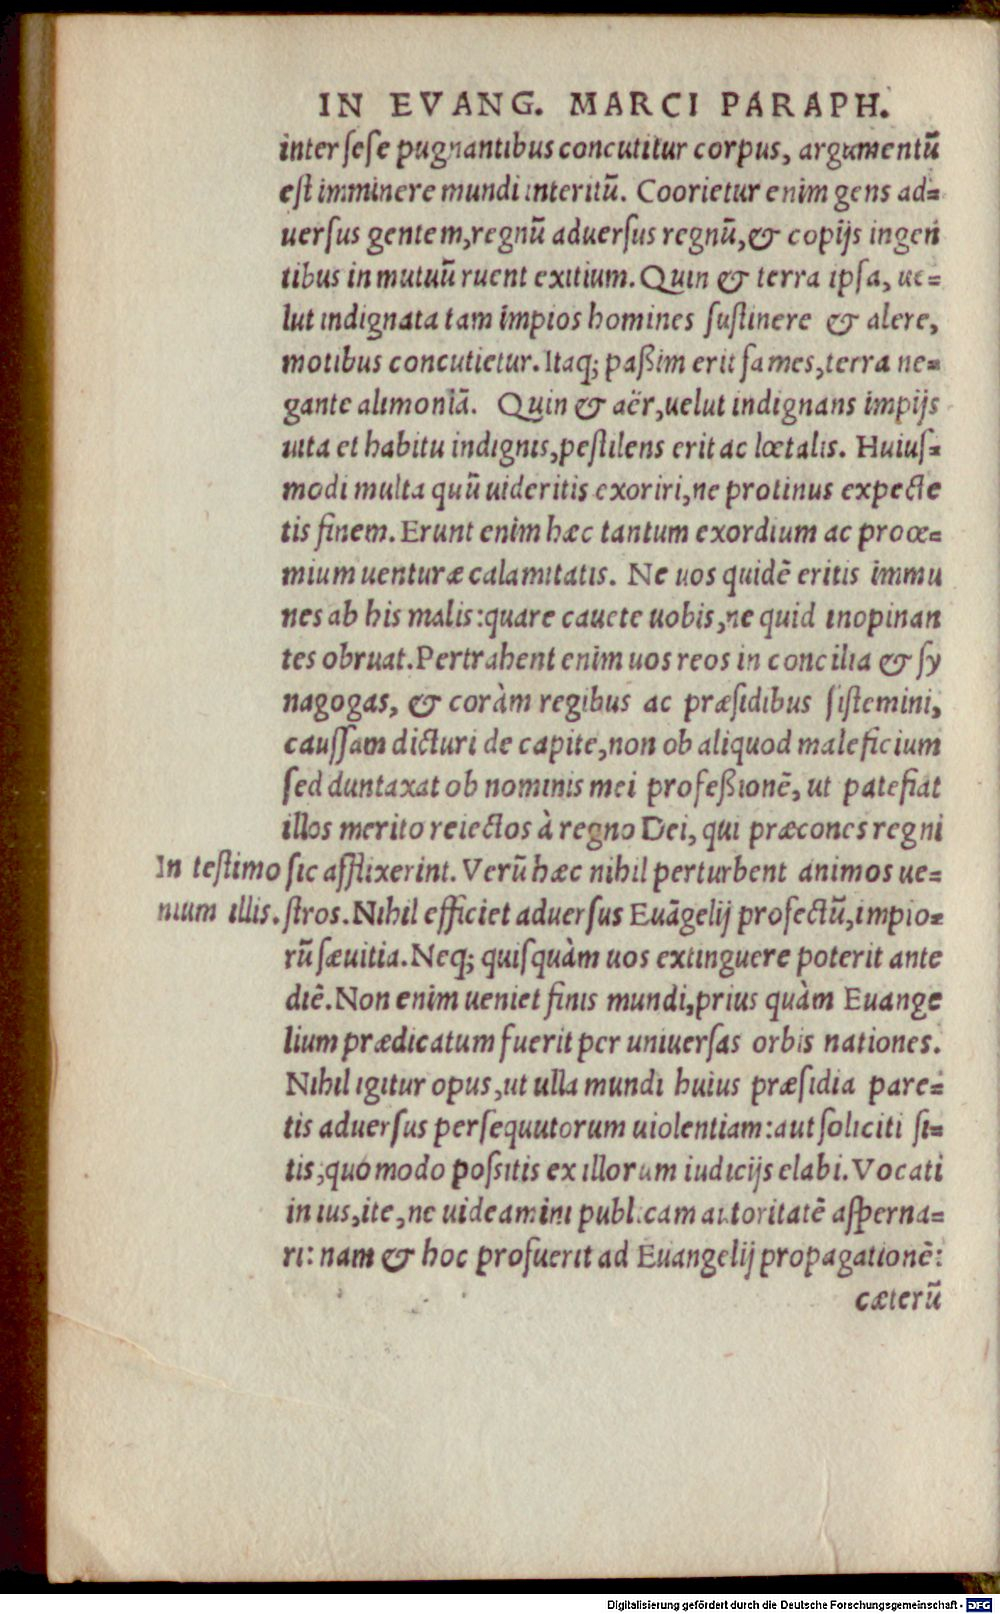 IN EVANG. MARCI PARAPH.
inter sese pugnantibus concutitur corpus, argumentū
est imminere mundi interitū. Coorietur enim gens ad=
uersus gentem, regnū aduersus regnū, & copijs ingen
tibus in mutuū ruent exitium. Quin & terra ipsa, ue=
lut indignata tam impios homines sustinere & alere,
motibus concutietur. Itaq; paßim erit fames, terra ne=
gante alimoniā. Quin & aër, uelut indignans impijs
uita et habitu indignis, pestilens erit ac lœtalis. Huius=
modi multa quū uideritis exoriri, ne protinus expecte
tis finem. Erunt enim hæc tantum exordium ac proœ=
mium uenturæ calamitatis. Ne uos quidē eritis immu
nes ab his malis: quare cauete uobis, ne quid inopinan
tes obruat. Pertrahent enim uos reos in concilia & sy
nagogas, & coràm regibus ac præsidibus sistemini,
caussam dicturi de capite, non ob aliquod maleficium
sed duntaxat ob nominis mei profeßionē, ut patefiat
illos merito reiectos à regno Dei, qui præcones regni
In testimo sic afflixerint. Verū hæc nihil perturbent animos ue=
nium illis. stros. Nihil efficiet aduersus Euāgelij profectū, impio=
rū sæuitia. Neq; quisquàm uos extinguere poterit ante
diē. Non enim ueniet finis mundi, prius quàm Euange
lium prædicatum fuerit per uniuersas orbis nationes.
Nihil igitur opus, ut ulla mundi huius præsidia pare=
tis aduersus persequutorum uiolentiam: aut soliciti si=
tis, quomodo possitis ex illorum iudicijs elabi. Vocati
in ius, ite, ne uideamini publicam autoritatē asperna=
ri: nam & hoc profuerit ad Euangelij propagationē:
cæterū
Digitalisierung gefördert durch die Deutsche Forschungsgemeinschaft - DFG